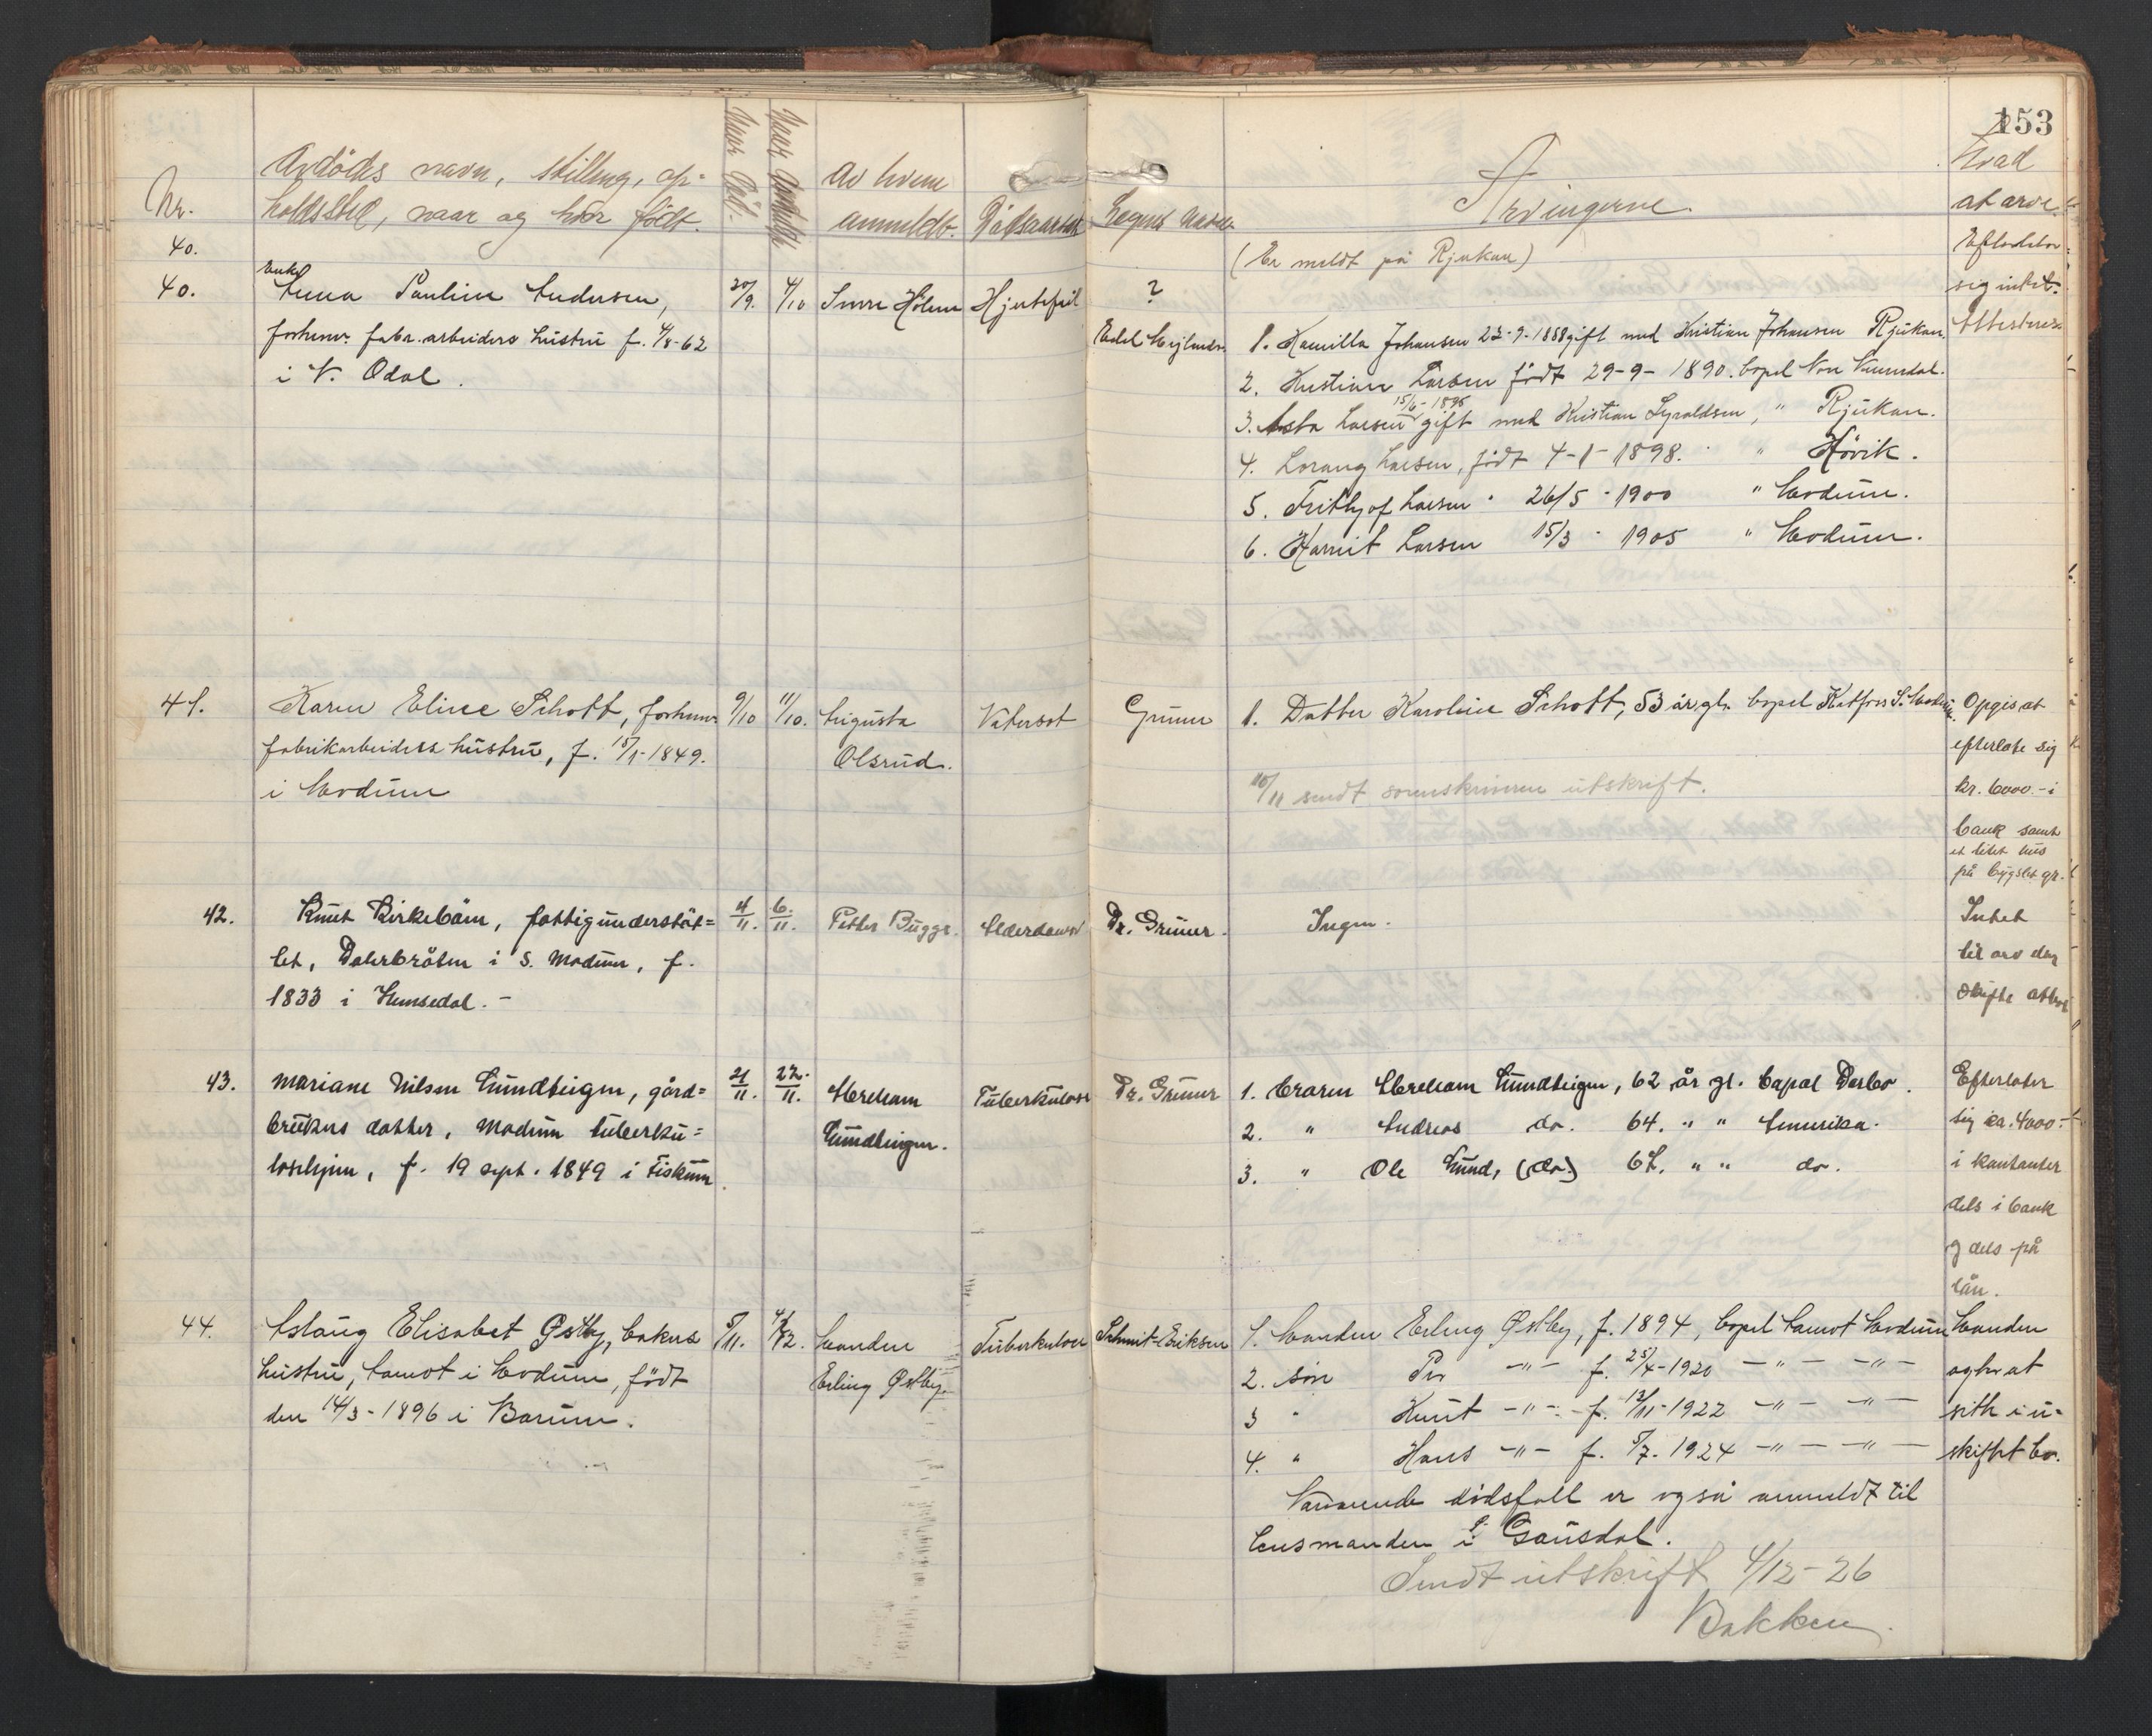 153
Nr.
Avdöds navn, stilling, op=
holdssted, naar og hvor født.
Naar död.
Naar anmeldt
Av hvem
anmeldt.
Dödsaarsak
Legens navn
Arvingerne.
Hvad
at arve.
40.
(Er meldt på Rjukan)
Efterlater
sig intet.
40.
Enke
Anna Pauline Andersen,
forhenv. fabr.arbeiders hustru f. 4/8-62
i N. Odal.
20/9.
4/10
Hjertefeil
?
1. Kamilla Johansen 22-9-1888 gift med Kristian Johansen Rjukan.
2. Kristian Larsen født 29-9-1890. bopel
3. Asta Larsen 15/6-1895 gift med Kristian " Rjukan.
4. Lorang Larsen, født 4-1-1898. " Hövik.
5. Frithjof Larsen " 26/5-1900 " Modum.
6. Harriet Larsen 15/3-1905 " Modum.
41.
Karen Eline Schott, forhenv.
fabrikarbeiders hustru, f. 15/1-1849.
i Modum
9/10
11/10.
Augusta
Olsrud.
Vatersot
Grüner
1. Datter Karoline Schott, 53 år gl. bopel Katfoss S. Modum.
10/11 sendt sorenskriveren utskrift.
Opgis at
efterlate sig
kr. 6000.- i
bank samt
et litet hus
på bygslet gr.
42.
Knut Kirkebøen, fattigunderstöt=
tet, Dalerbråten i S. Modum, f.
1833 i Hemsedal.-
4/11.
6/11.
Petter Bugge.
Alderdomsv
Dr. Grüner.
Ingen.
Intet
til arv eller
skifte
43.
Mariane Nilsen Lundteigen, gård=
brukers datter, Modum tuberku=
losehjem, f. 19 sept. 1849 i Fiskum.
21/11.
22/11.
Abraham
Lundteigen.
Tuberkulose
Dr. Grüner
1. Broren Abraham Lundteigen, 62 år gl. bopæl Darbo.
2. " Andreas do. 64. " " Amerika.
3. " Ole Lund, (do.) 67. " " do.
Efterlater
sig ca. 4000.-
i kontanter
dels i bank
og dels på
lån.
44.
Aslaug Elisabet Østby, bakers
hustru, Åmot i Modum, født
den 14/3-1896 i Bærum.
5/11.
4/12.
Manden
Erling Østby.
Tuberkulose
Schmidt-Eriksen
1. Manden Erling Østby, f. 1894, bopel Åmot Modum
2. søn Per -"- f. 25/4-1920 -"- -"-
3 " Knut -"- f. 13/11-1922 -"- -"-
4. " Hans -"- f. 5/7-1924 -"- -"-
Nærværende dödsfall er også anmeldt til
lensmanden i Ö. Gausdal.
Sendt utskrift 4/12-26
Bakken
Manden
agter at
sitte i u=
skiftet bo.